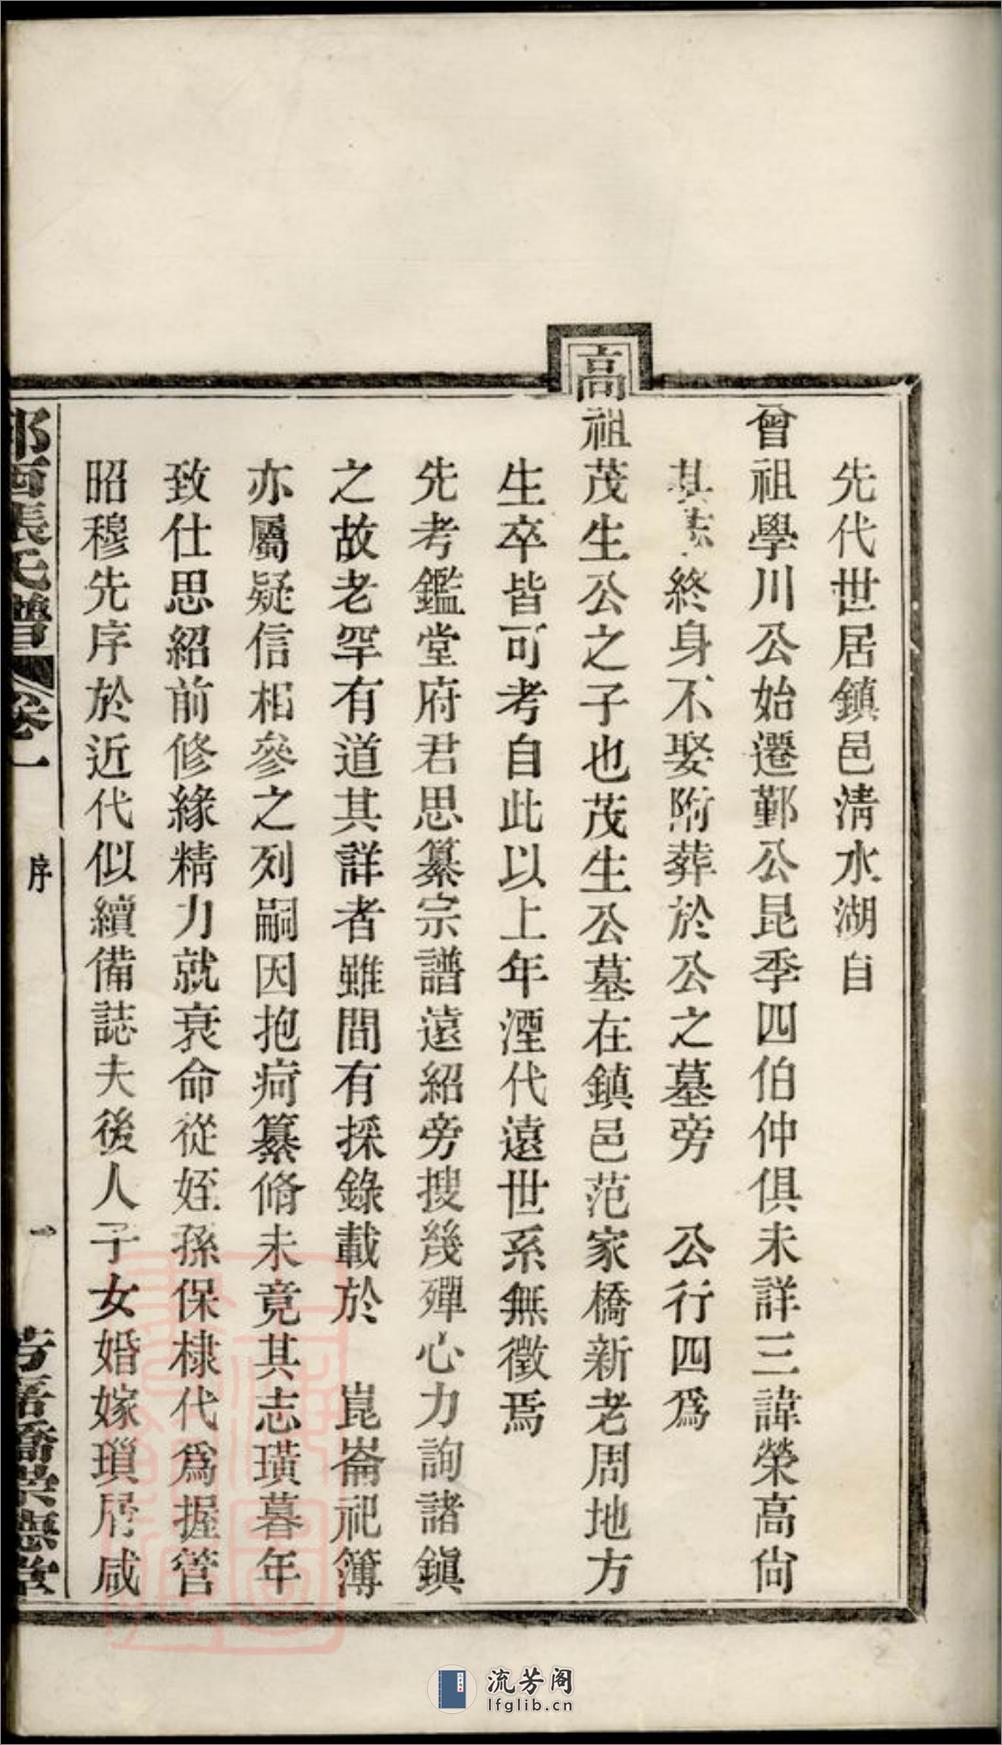 先代世居鎮邑淸水湖自
曾祖學川公始遷鄞公昆季四伯仲俱未詳三諱榮高尙
其志終身不娶附葬於公之墓旁　公行四爲
高祖茂生公之子也茂生公墓在鎮邑范家橋新老周地方
生卒皆可考自此以上年湮代遠世系無徵焉
先考鑑堂府君思纂宗譜遠紹旁搜幾殫心力詢諸鎭
之故老罕有道其詳者雖間有採錄載於　崑崙祀簿
亦屬疑信相參之列嗣因抱疴纂脩未竟其志璜暮年
致仕思紹前修緣精力就衰命從姪孫保棣代爲握管
昭穆先序於近代似續備誌夫後人子女婚嫁瑣屑咸
西張氏譜　卷一　序　一　崇德堂
流芳阁
lfglib.cn